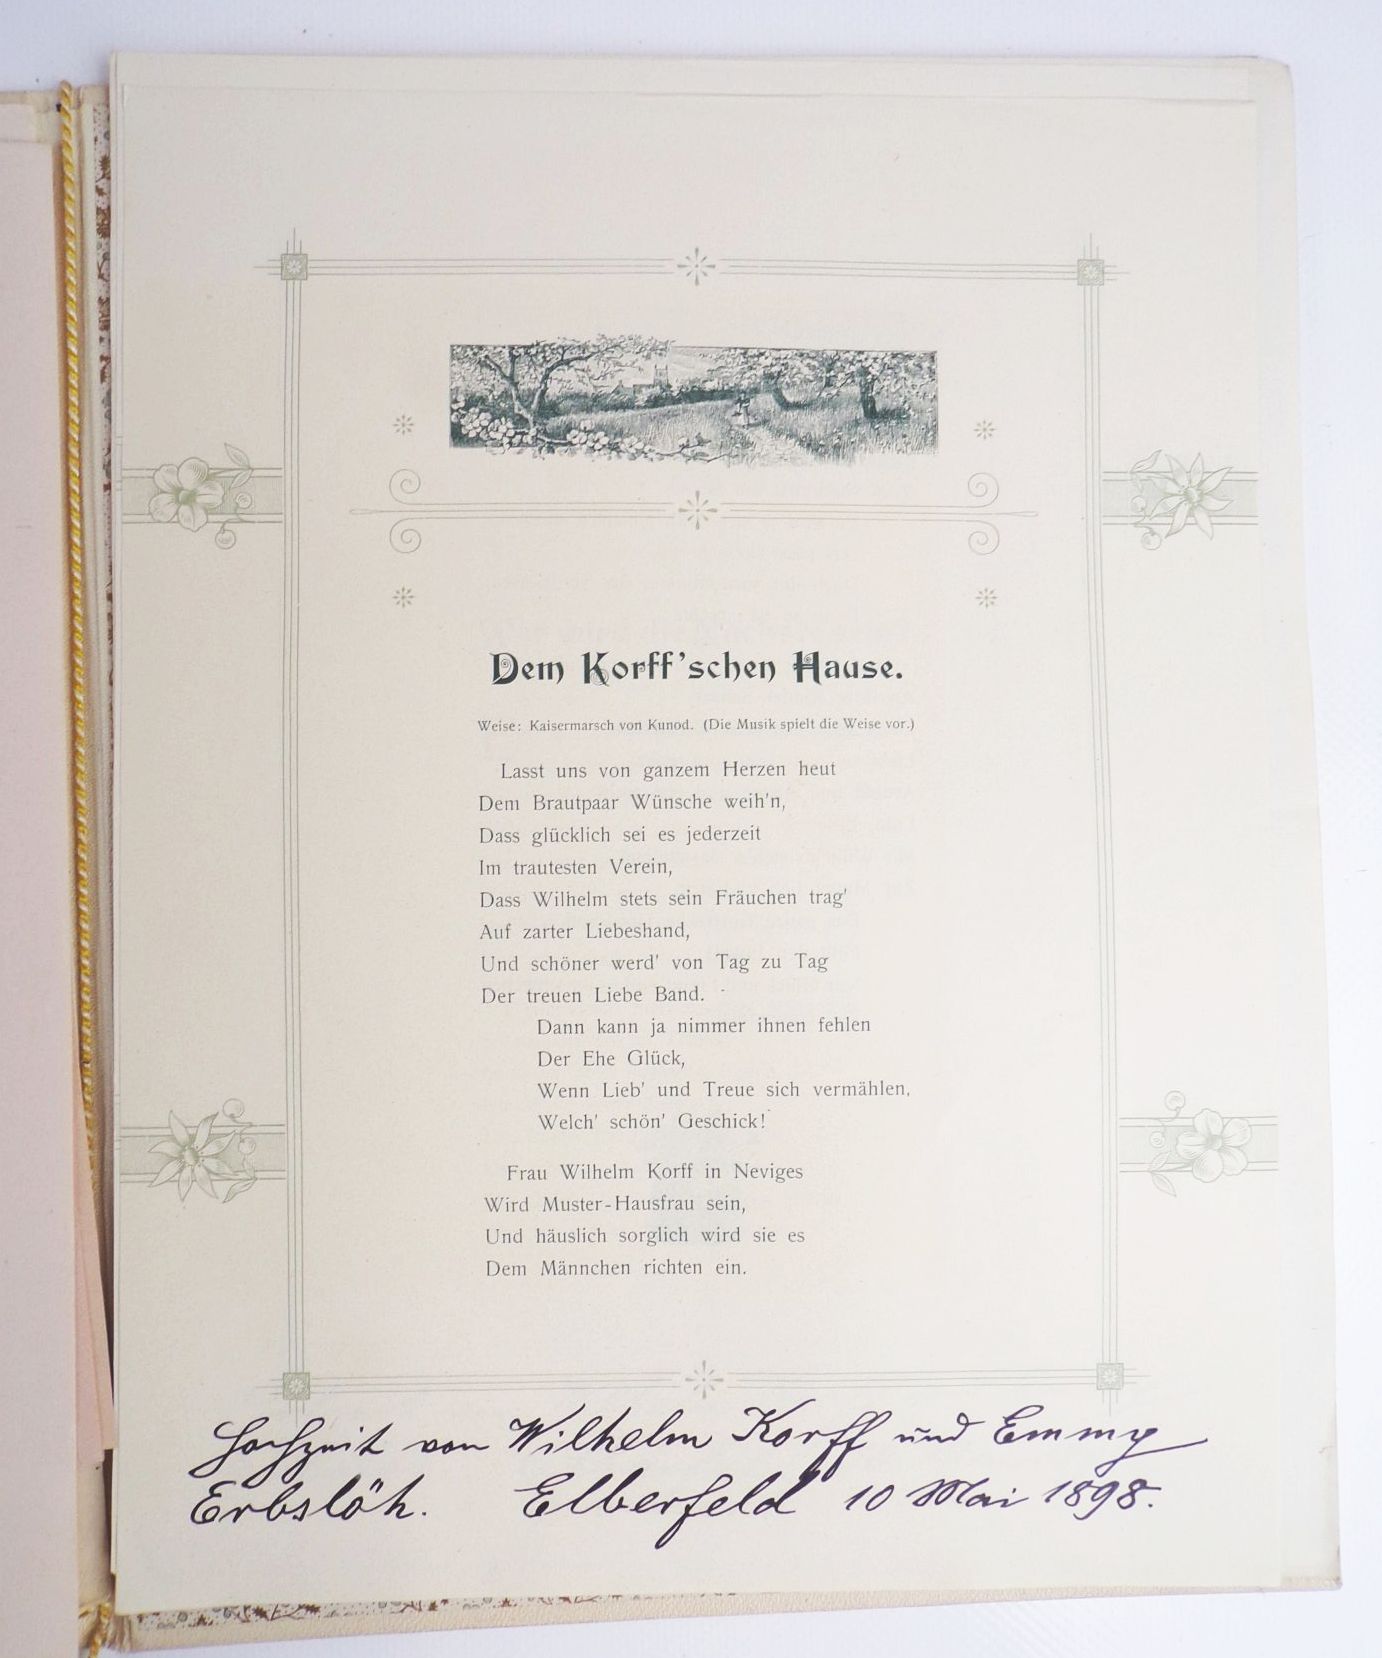 Dem Korff'schen Hause.
Weise: Kaisermarsch von Kunod. (Die Musik spielt die Weise vor.)
Lasst uns von ganzem Herzen heut
Dem Brautpaar Wünsche weih'n,
Dass glücklich sei es jederzeit
Im trautesten Verein,
Dass Wilhelm stets sein Fräuchen trag'
Auf zarter Liebeshand,
Und schöner werd' von Tag zu Tag
Der treuen Liebe Band.
Dann kann ja nimmer ihnen fehlen
Der Ehe Glück,
Wenn Lieb' und Treue sich vermählen,
Welch' schön' Geschick!
Frau Wilhelm Korff in Neviges
Wird Muster-Hausfrau sein,
Und häuslich sorglich wird sie es
Dem Männchen richten ein.
Hochzeit von Wilhelm Korff und Emmy
Erbslöh. Elberfeld 10 Mai 1898.